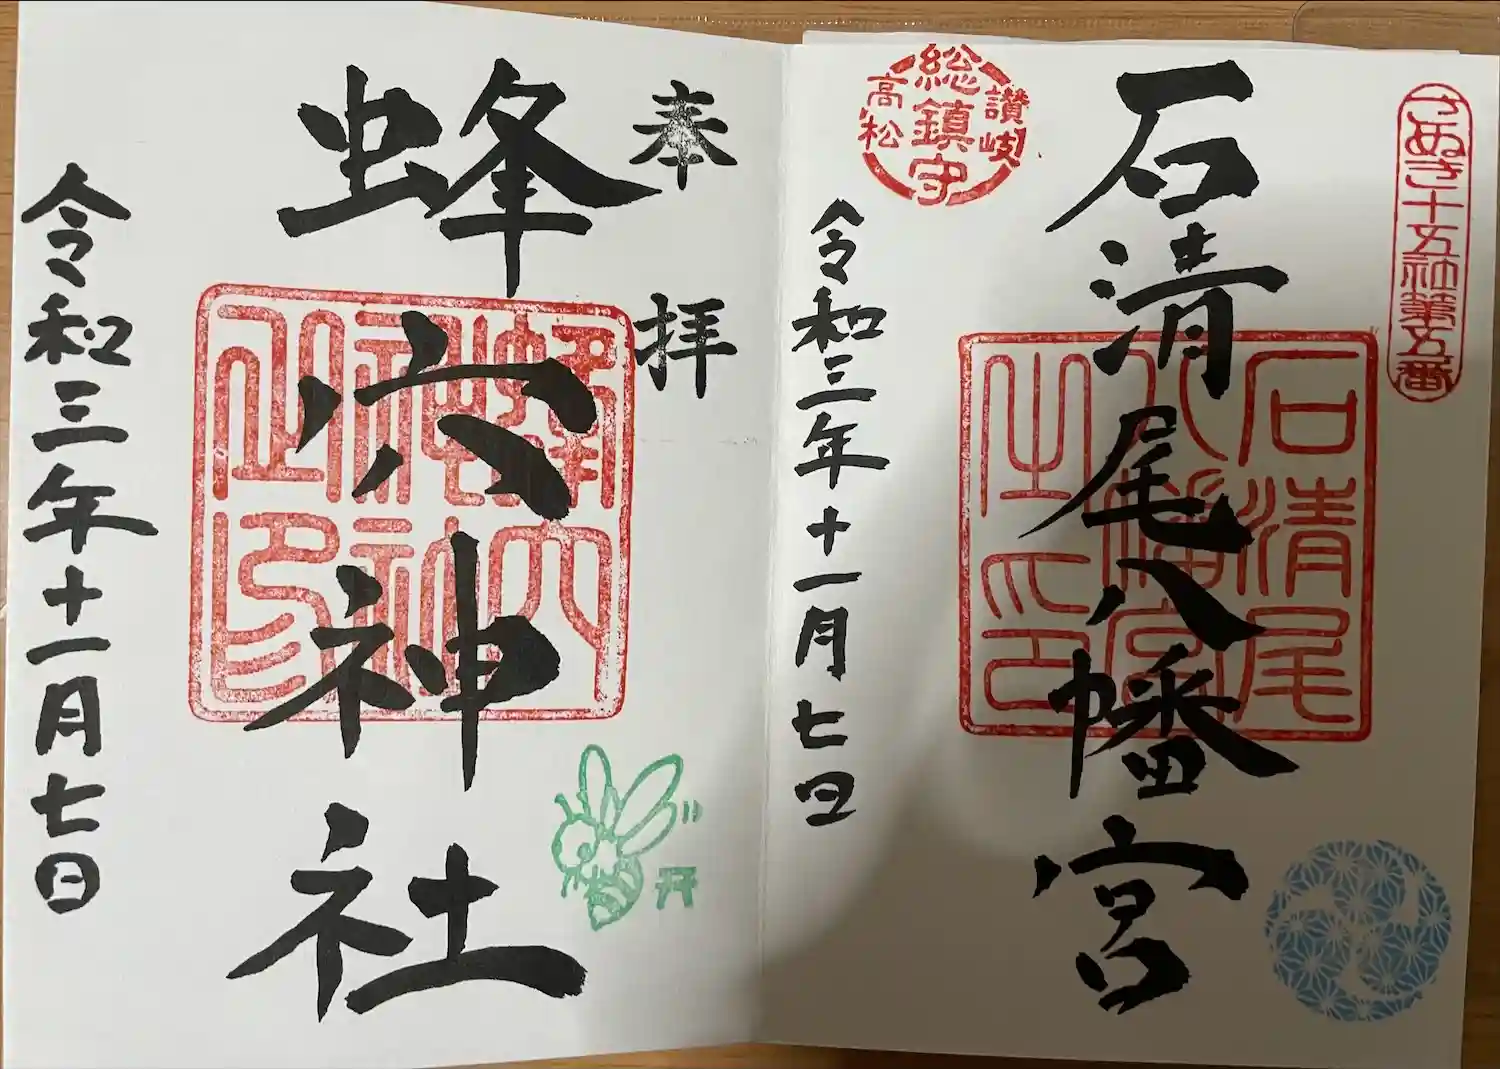 さぬき十五社第五番
石清尾八幡宮
石清尾
八幡宮
之印
讃岐
総鎮守
高松
令和三年十一月七日
奉拝
蜂穴神社
蜂穴
神社
之印
令和三年十一月七日